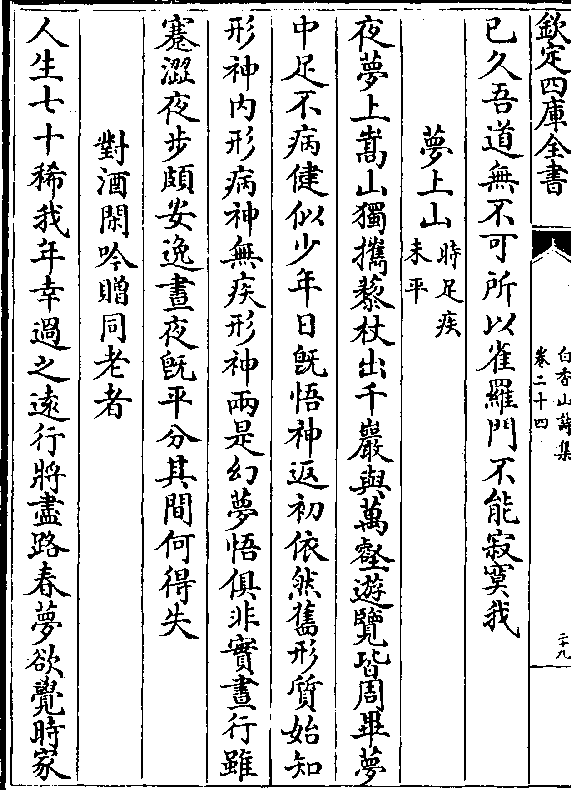 欽定四庫全書
白香山詩集
卷二十四
二十九
已久吾道無不可所以雀羅門不能寂寞我
夢上山時足疾未平
夜夢上嵩山獨攜藜杖出千巖與萬壑遊覽皆周畢夢
中足不病健似少年日既悟神返初依然舊形質始知
形神内形病神無疾形神兩是幻夢悟俱非實晝行雖
蹇澀夜步頗安逸晝夜既平分其間何得失
對酒閑吟贈同老者
人生七十稀我年幸過之遠行將盡路春夢欲覺時家